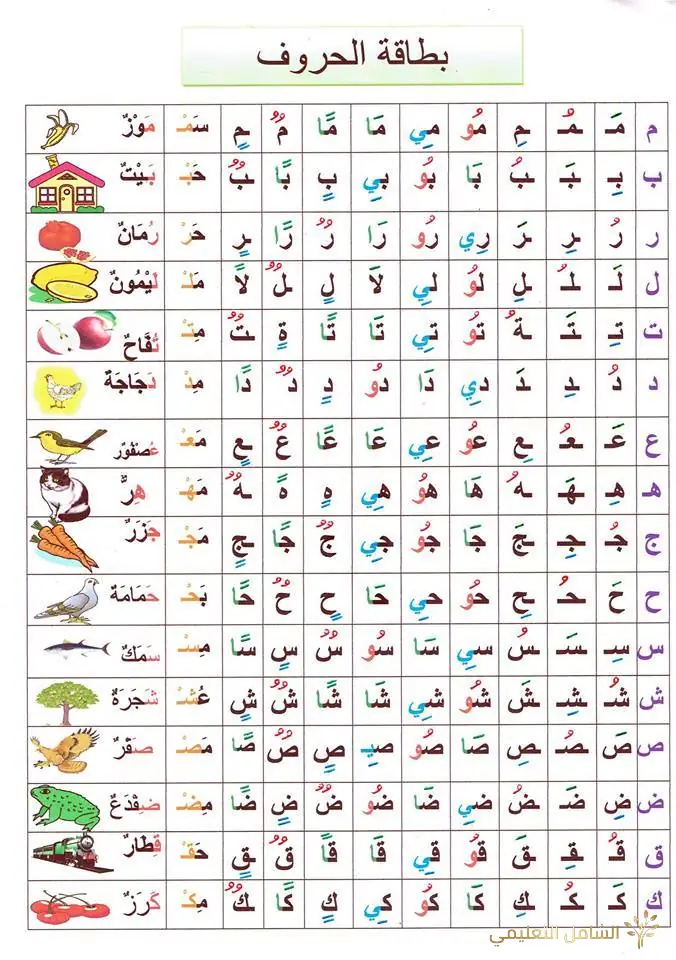 بطاقة الحروف
م مَـ ـمُـ ـمِ مُو مِي مَا مًا مٌ ـمٍ سَمْـ مَوْزٌ
ب بِـ ـبَـ ـبُ بَا بُو بِي بٍ بًا ـبٌ حَبْـ بَيْتٌ
ر رُ ـرِ ـرَ رِي رُو رَا رٌ رًا ـرٍ حَرْ رُمَانٌ
ل لَـ ـلُـ ـلِ لُو لِي لَا لٍ ـلٌ لًا مَلْـ لَيْمُونٌ
ت تِـ ـتَـ ـةُ تُو تِي تَا تًا ةٍ ـتٌ مِتْـ تُفَّاحٌ
د دُ ـدِ ـدَ دِي دَا دُو دٍ دٌ دًا مِدْ دَجَاجَةٌ
ع عَـ ـعُـ ـعِ عُو عِي عَا عًا عٌ ـعٍ مَعْـ عُصْفُورٌ
هـ هِـ ـهَـ ـهُ هَا هُو هِي هٍ هً ـهٌ مَهْـ هِرٌّ
ج جُـ ـجِـ ـجَ جَا جُو جِي جٌ جًا ـجٍ مَجْـ جَزَرٌ
ح حَ ـحُـ ـحِ حُو حِي حَا حٍ حٌ حًا بَحْـ حَمَامَةٌ
س سِـ ـسَـ ـسُ سِي سَا سُو سٌ سٍ سًا مِسْـ سَمَكٌ
ش شُـ ـشِـ ـشَ شُو شِي شَا شًا شٌ شٍ عُشْـ شَجَرَةٌ
ص صَ ـصُـ ـصِ صَا صُو صِيـ صٍ صٌ صًا مَصْـ صَقْرٌ
ض ضِ ـضَـ ـضُ ضِي ضَا ضُو ضٌ ضٍ ضًا مِضْـ ضِفْدَعٌ
ق قُـ ـقِـ ـقَ قُو قِي قَا قًا قٌ ـقٍ حَقْـ قِطَارٌ
ك كَـ ـكُـ ـكِ كَا كُو كِي كٍ كًا ـكٌ مِكْـ كَرَزٌ
الشامل التعليمي